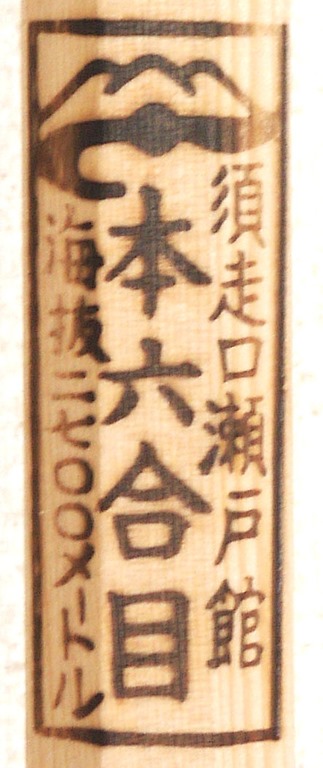 須走口瀬戸館
本六合目
海抜二七〇〇メートル